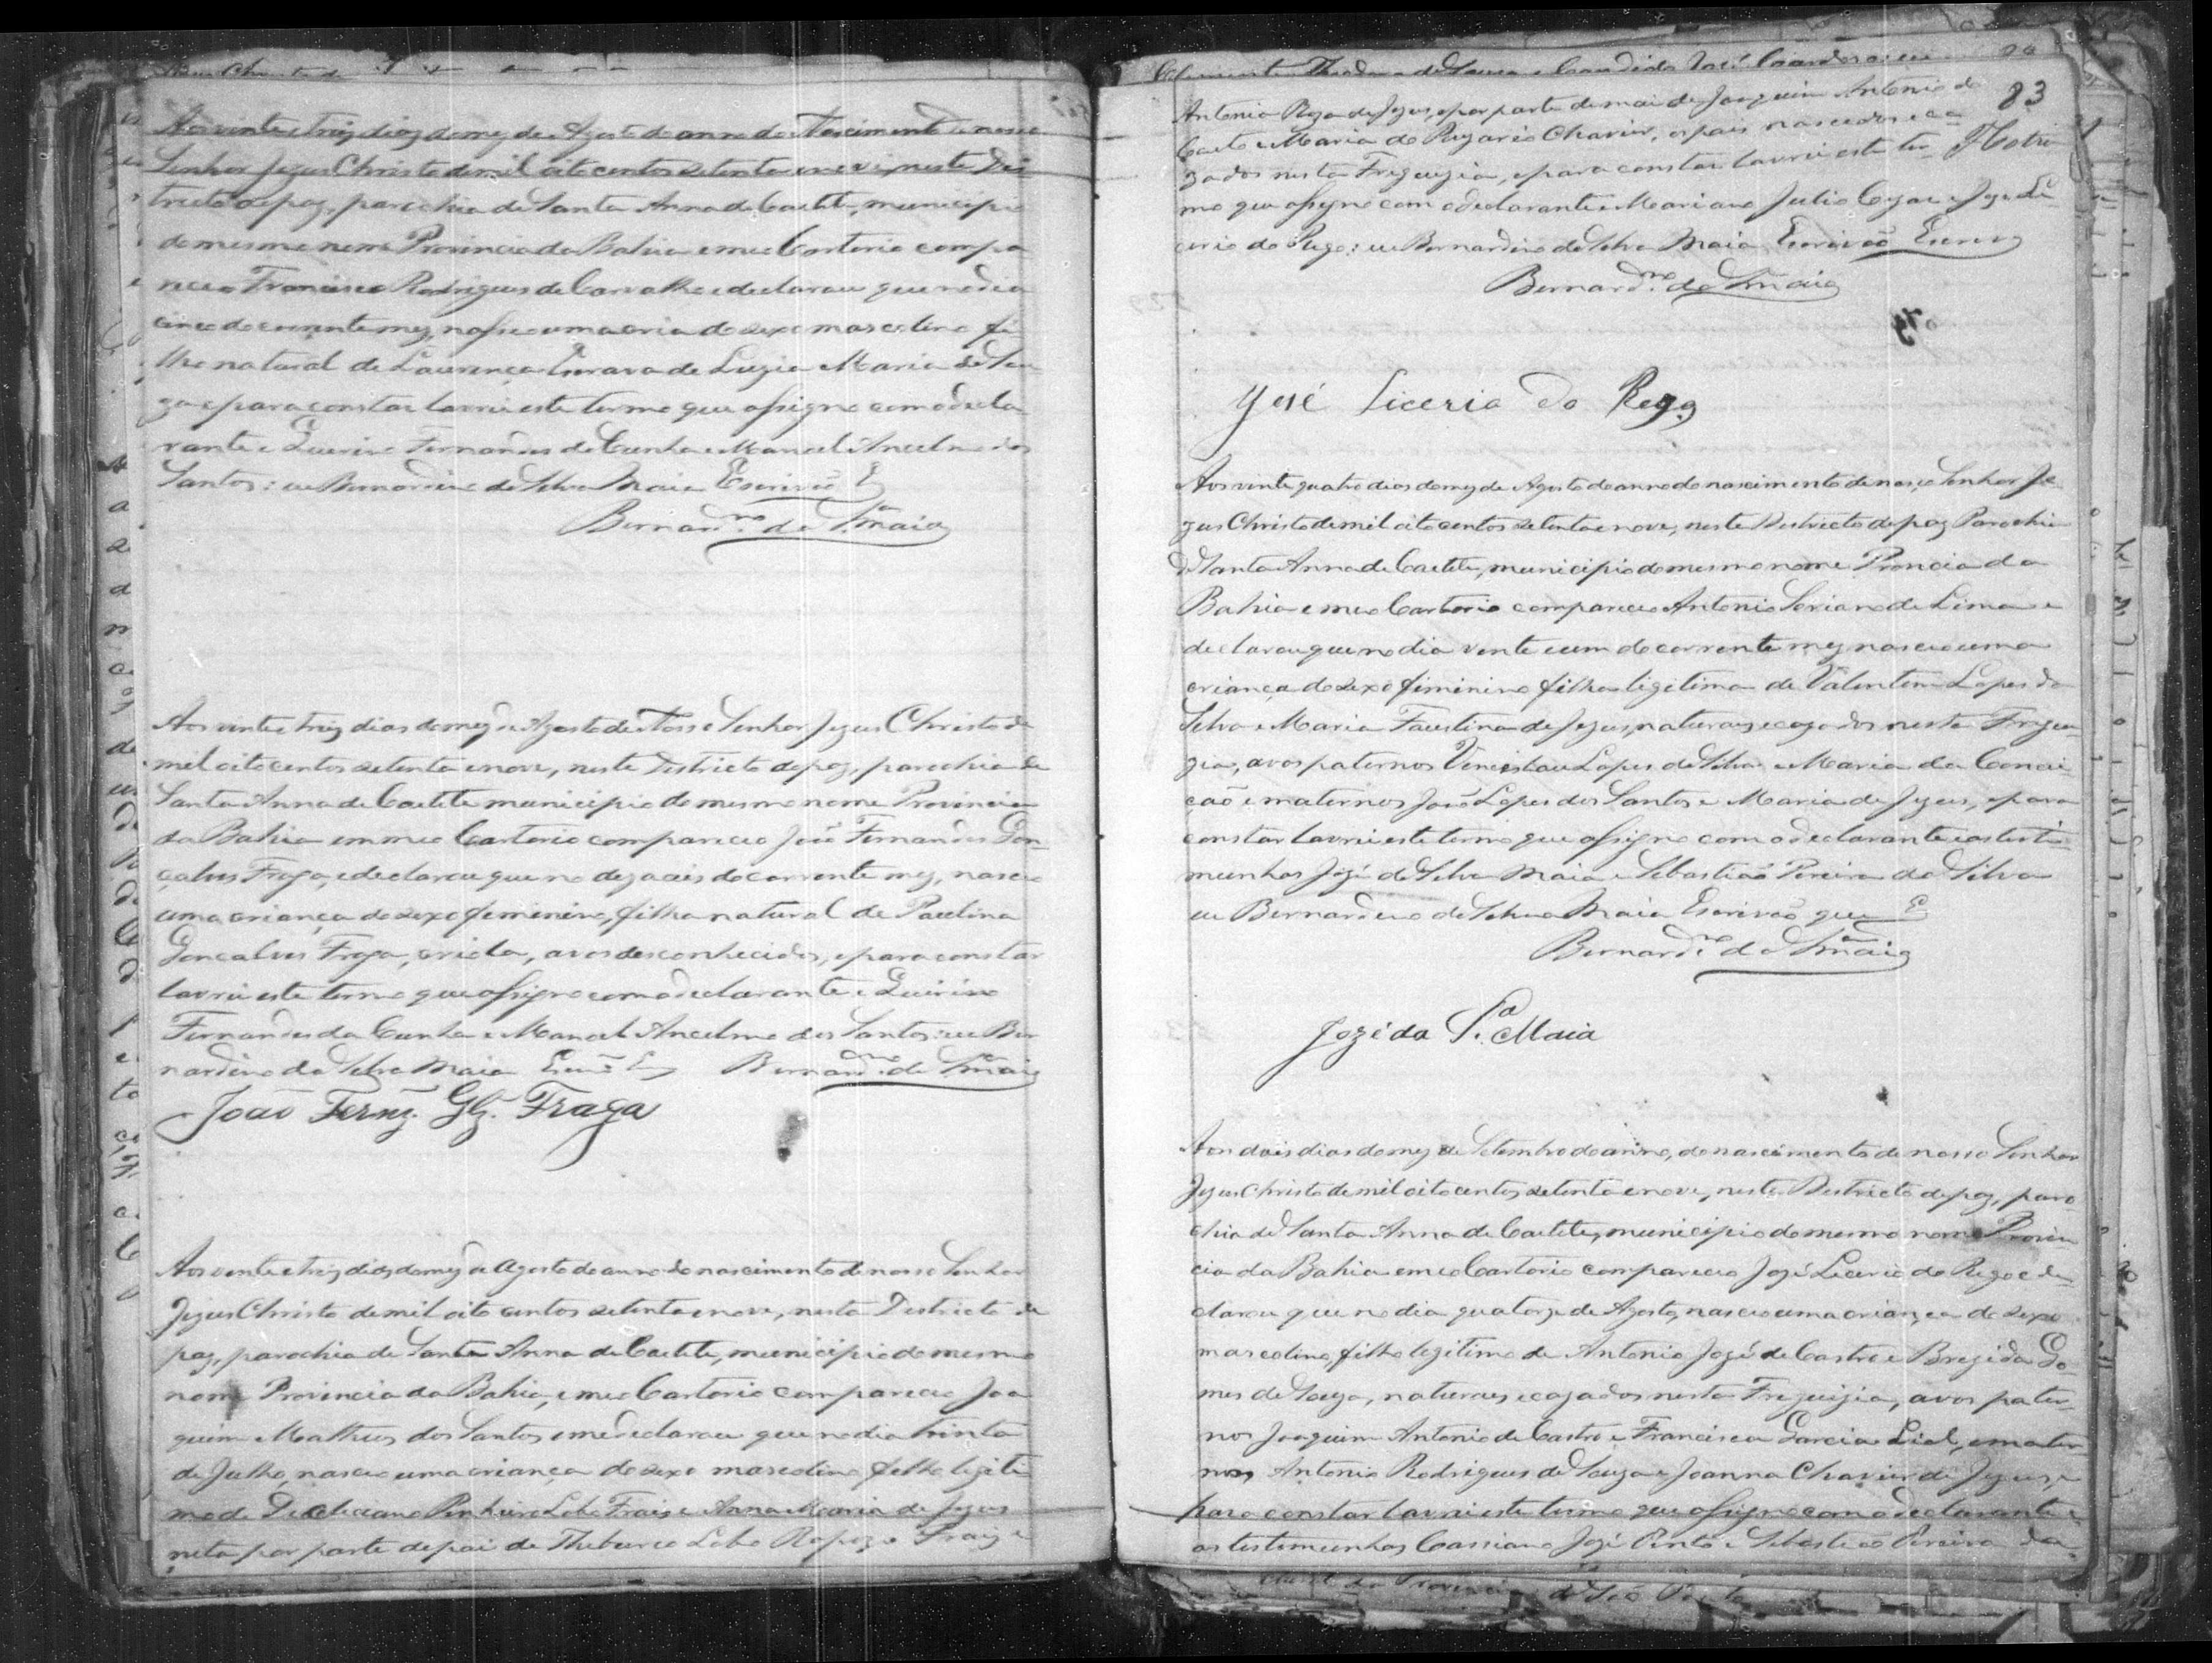 Aos vinte e trez dias do mez de Agosto do anno do Nascimento de nosso
Senhor Jezus Christo de mil oito centos setenta e nove, neste Dis-
tricto de paz, parochia de Santa Anna de Caetité, municipio
do mesmo nome Provincia da Bahia e meo Cartorio compa
receo Francisco Rodrigues de Carvalho e declarou que no dia
cinco do corrente mez, nasceo uma cria do sexo mascolino fi
lho natural de Lourença Escrava de Luzia Maria de Sou
za e para constar lavrei este termo que assigno com o decla
rante e Quirino Fernandes da Cunha e Manoel Ancelmo dos
Santos: eu Bernardino da Silva Maia Escrivão E
Bernardno da Sa Maia
Aos vinte e trez dias do mez de Agosto de Nosso Senhor Jezus Christo de
mil oito centos setenta e nove, neste Districto de paz, parochia de
Santa Anna de Caetité municipio do mesmo nome Provincia
da Bahia em meo Cartorio compareceo João Fernandes Gon-
çalves Fraga, e declarou que no dezaceis do corrente mez, nasceo
uma criança do sexo feminino, filha natural de Paulina
Gonçalves Fraga, criola, avos desconhecidos, e para constar
lavrei este termo que assigno com o declarante e Quirino
Fernandes da Cunha e Manoel Ancelmo dos Santos: eu Ber
nardino da Silva Maia Escrm E Bernardno da Sa Maia
João Fernz. Glz. Fraga
Aos vinte e trez dias do mez de Agosto do anno do nascimento de nosso Senhor
Jezus Christo de mil oito centos setenta e nove, nesta Districto de
paz, parochia de Santa Anna de Caetité, municipio do mesmo
nome Provincia da Bahia, e meo Cartorio compareceo Joa
quim Matheus dos Santos e me declarou que no dia trinta
de Julho, nasceo uma criança do sexo mascolino filho legiti
mo de Pinheiro Lobo Frais e Anna Maria de Jezus
neto por parte de pai de Lobo Rapozo Fraiz e
83
Antonia Roza de Jezus, e por parte de mai de Joaquim Antonio do
Couto e Maria do Rozario Chavier, os pais nascedos e ca
zados nesta Freguezia, e para constar lavrei este ter
mo que assigno com o declarante e Mariano Julio Cezar e Joze Li
cerio do Rego: eu Bernardino da Silva Maia Escrivão Escrevy
Bernardno da Sa Maia
José Licerio do Rego
Aos vinte quatro dias do mez de Agosto do anno do nascimento de nosço Senhor Je
zus Christo de mil oito centos setenta e nove, neste Destricto de paz Parochia
de Santa Anna de Caetité, municipio do mesmo nome Proncia da
Bahia e meo Cartorio compareceo Antonio Soriano de Lima e
declarou que no dia vente e um do corrente mez nasceo uma
criança do sexo fiminino filha ligitima de Valentim Lopes da
Silva e Maria Faustina de Jezus, naturaes e cazados nesta Fregue-
zia, avos paternos Venceslau Lopes da Silva e Maria da Concei-
ção e maternos José Lopes dos Santos e Maria de Jezus, e para
constar lavrei este termo que assigno com o declarante e as teste-
munhas Jozé da Silva Maia e Sebastião Pereira da Silva
eu Bernardino da Silva Maia Escrivão que E
Bernardno da Sa Maia
Jozé da Sa Maia
Aos dois dias do mez de Setembro do anno, do nascimento de nosso Senhor
Jezus Christo de mil oito centos setenta e nove, neste Destricto de paz, paro
chia de Santa Anna de Caetité, municipio do mesmo nome Provin
cia da Bahia e meo Cartorio compareceo Jozé Licerio do Rego e de
clarou que no dia quatorze de Agosto, nasceo uma criança do sexo
mascolino, filho legitimo de Antonio Jozé de Castro e Bregida Go
mes de Souza, naturaes e cazados nesta Freguizia, avos pater-
nos Joaquim Antonio de Castro e Francisca Garcia Lial, e mater
nos, Antonio Rodrigues de Souza e Joanna Chavier de Jezus, e
para constar lavrei este termo que assigno com o declarante e
as testemunhas Cassiano Jozé Pinto e Sebastião Pereira da